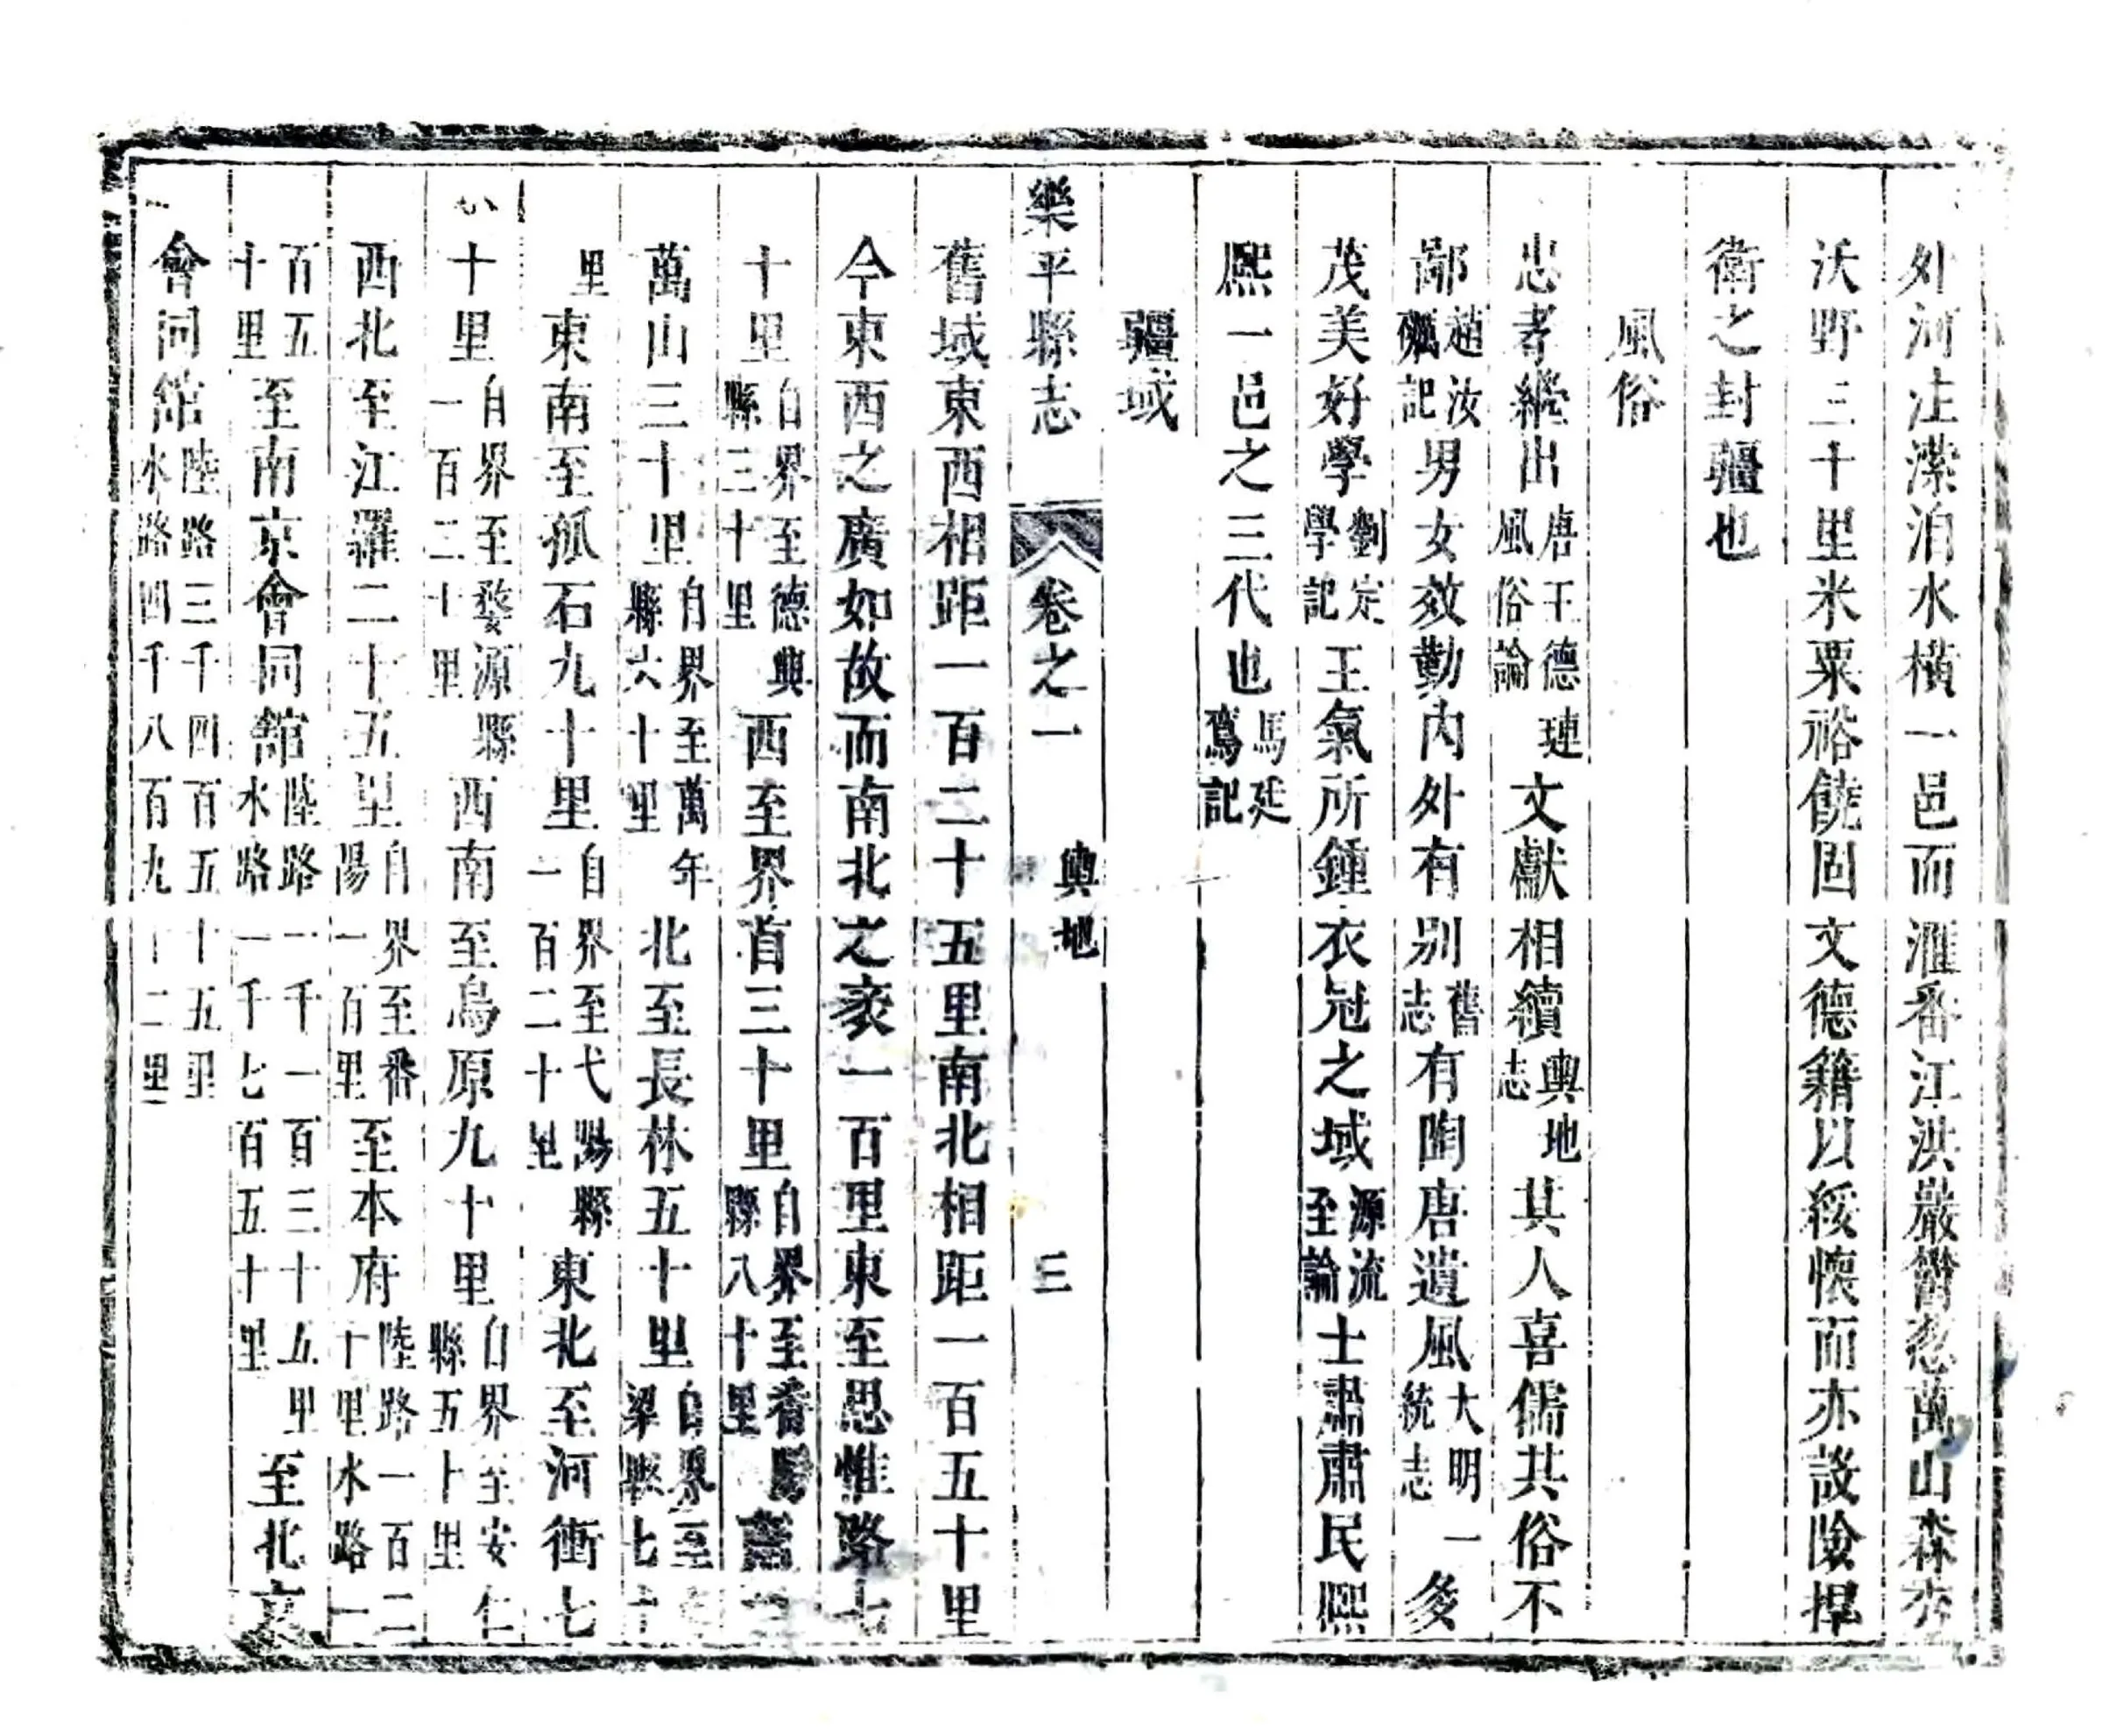 外河注濼泊水橫一邑而滙番江洪巖欝葱萬山森夯
沃野三十里米粟裕饒固文德籍以綏懷而亦設險捍
衛之封疆也
風俗
忠孝繼出唐王德璉風俗論文獻相續輿地志其人喜儒其俗不
鄙趙汝礪記男女效勤內外有别舊志有陶唐遺風大明一統志多
茂美好學劉定學記王氣所鍾衣冠之域源流至論士肅肅民熙
熙一邑之三代也馬廷鸞記
疆域
樂平縣志 卷之一 輿地 三
舊域東西相距一百二十五里南北相距一百五十里
今東西之廣如故而南北之袤一百里東至思惟路七
十里自界至德興縣三十里西至界首三十里自界至番陽縣八十里
萬山三十里自界至萬年縣六十里北至長林五十里自界至梁縣七十
里東南至孤石九十里自界至弋陽縣一百二十里東北至河衝七
十里自界至婺源縣一百二十里西南至烏原九十里自界至安仁縣五十里
西北至江羅二十五里自界至番陽一百里至本府陸路一百二十里水路一
百五十里至南京會同舘陸路一千一百三十五里水路一千七百五十里至北京
會同舘陸路三千四百五十五里水路四千八百九十二里